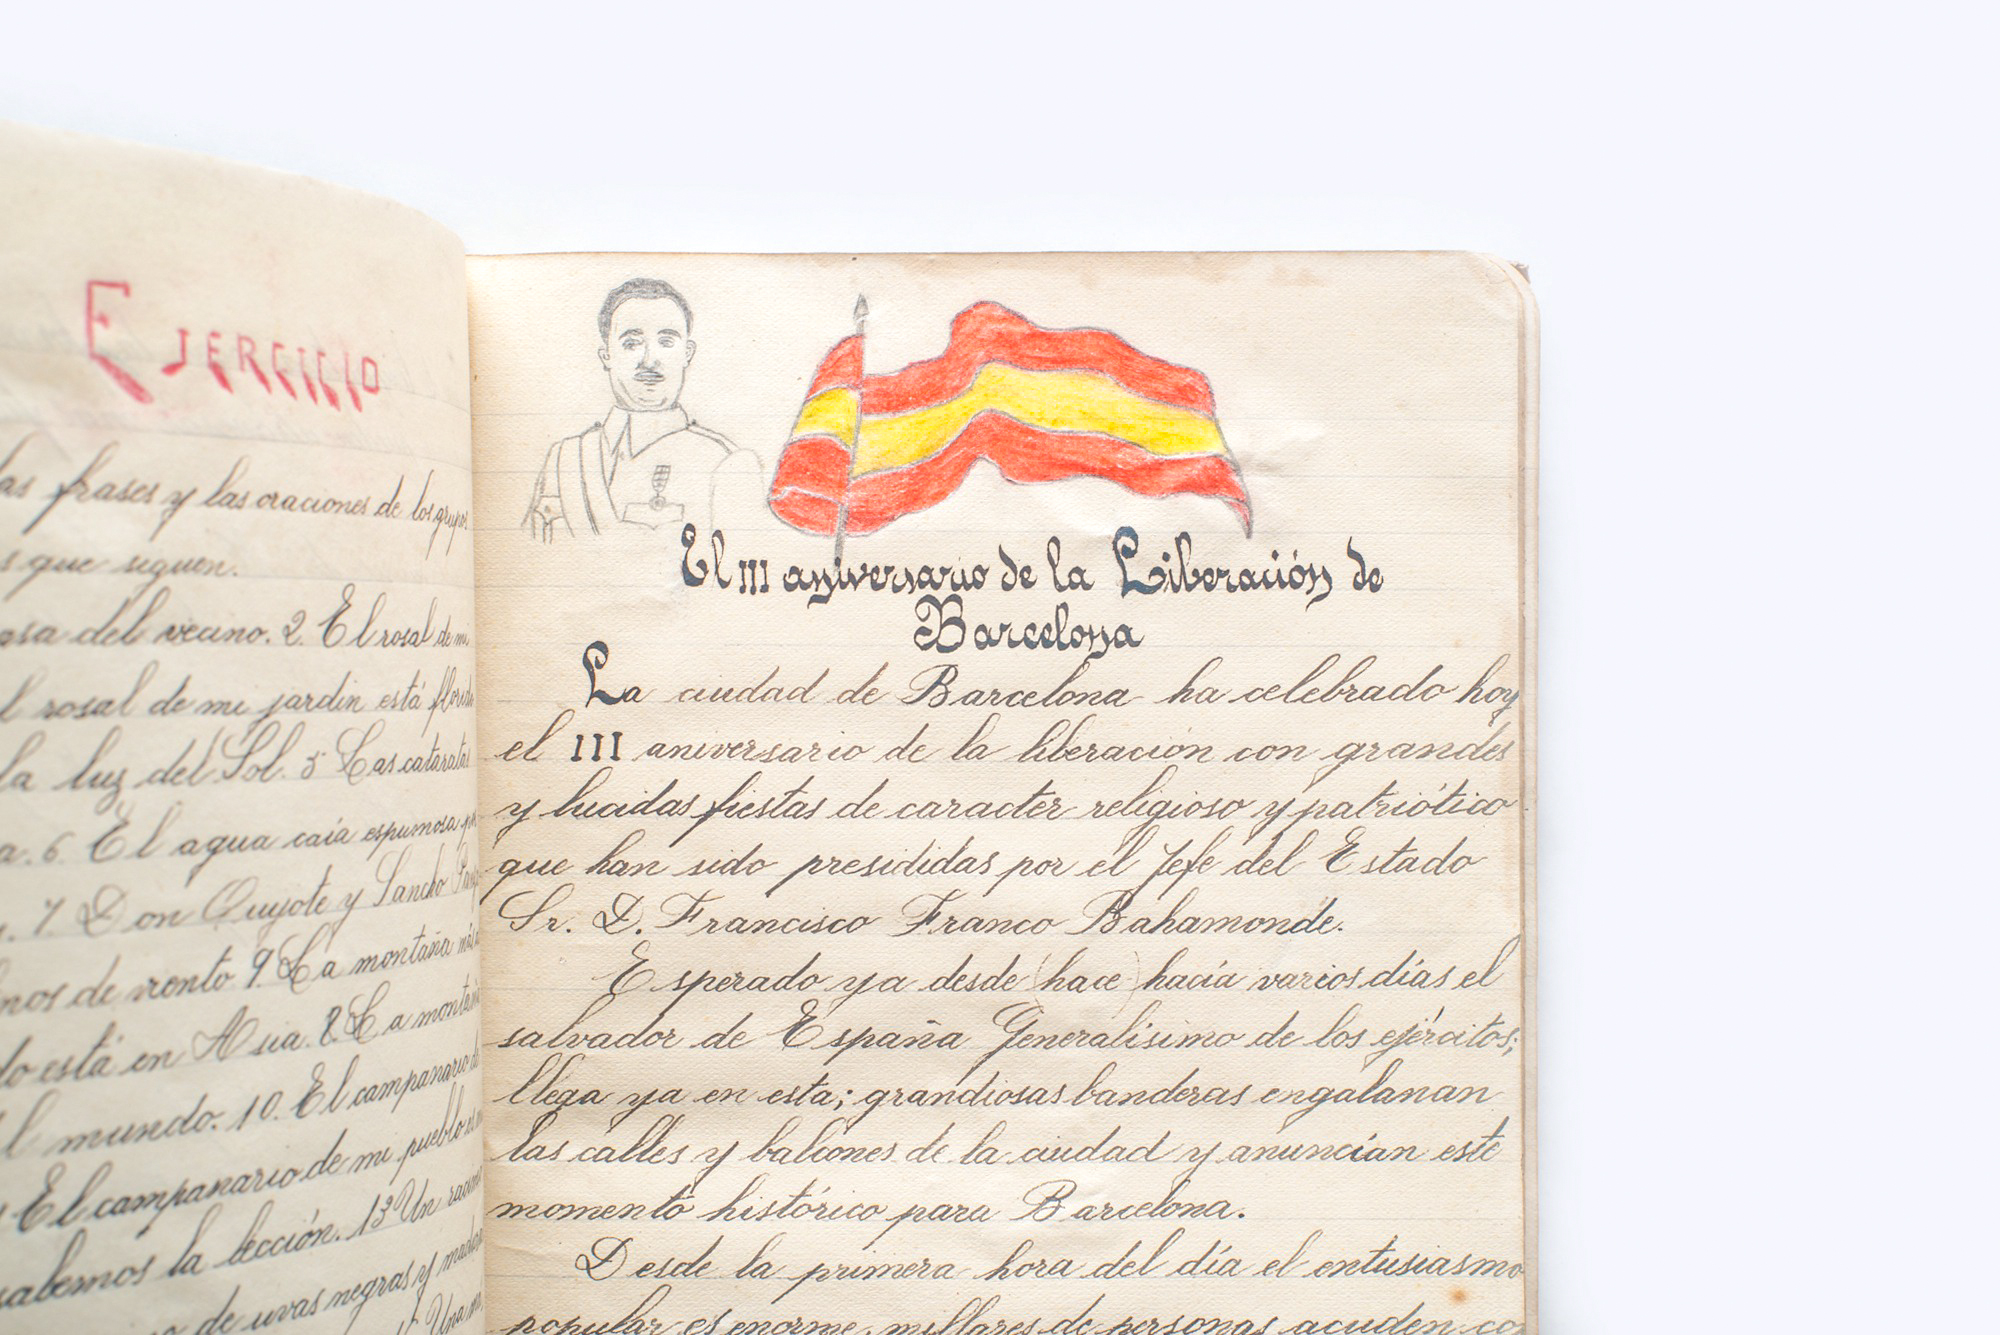 Ejercicio
las frases y las oraciones de los grupos
que siguen.
del vecino. 2. El rosal de mi
rosal de mi jardín está florido
la luz del Sol. 5 Las cataratas
6. El agua caía espumosa
7 Don Quijote y Sancho Panza
de viento 9. La montaña más
está en Asia. 8. La montaña
mundo. 10. El campanario de
El campanario de mi pueblo es
sabemos la lección. 13 Un
de uvas negras y
Una
El III aniversario de la Liberación de
Barcelona
La ciudad de Barcelona ha celebrado hoy
el III aniversario de la liberación con grandes
y lucidas fiestas de caracter religioso y patriótico
que han sido presididas por el Jefe del Estado
Sr. D. Francisco Franco Bahamonde.
Esperado ya desde (hace) hacía varios días el
salvador de España Generalísimo de los ejércitos;
llega ya en esta; grandiosas banderas engalanan
las calles y balcones de la ciudad y anuncían este
momento histórico para Barcelona.
Desde la primera hora del día el entusiasmo
popular es enorme, millares de personas acuden